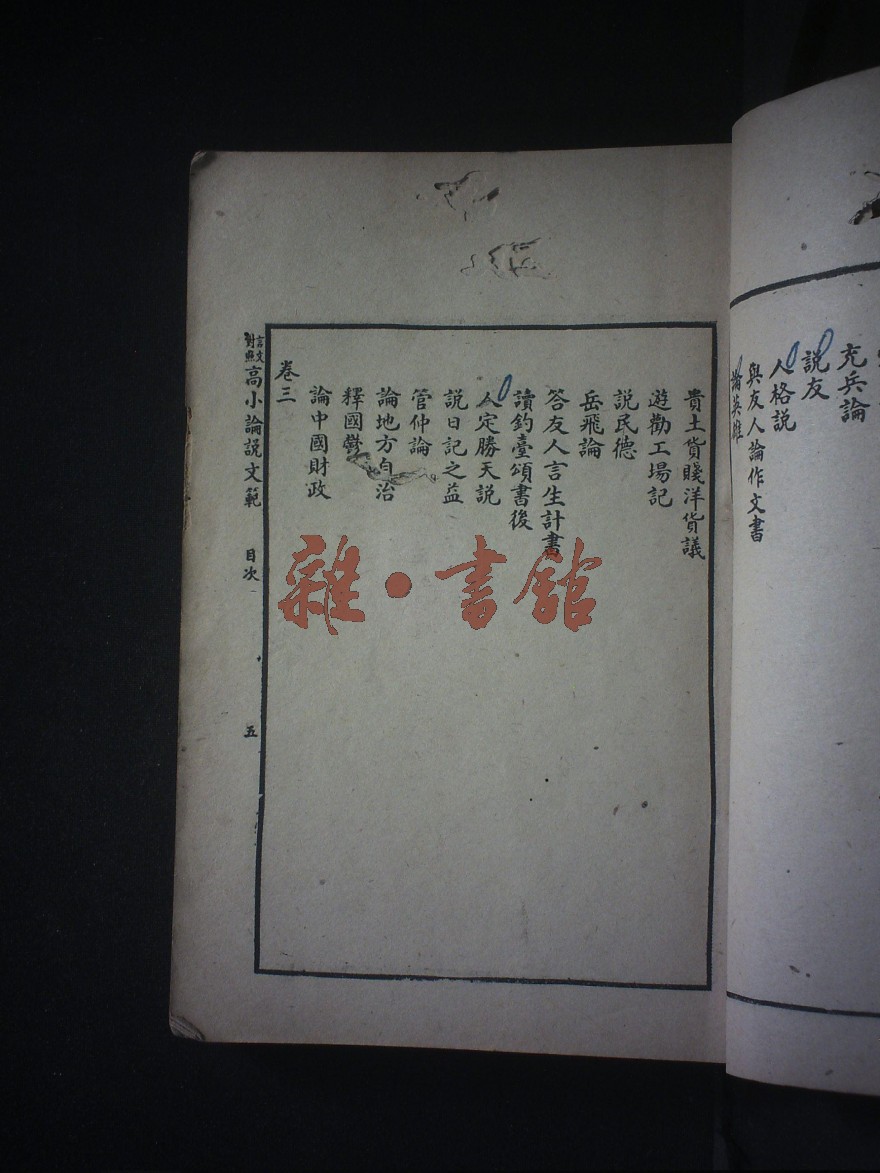 充兵論
説友
人格説
與友人論作文書
諸英雄
貴土貨賤洋貨議
遊勸工場記
説民德
岳飛論
答友人言生計書
讀釣臺頌書後
人定勝天説
説日記之益
管仲論
論地方自治
釋國幣
論中國財政
卷三
言文對照高小論説文範 目次 五
雜·書館